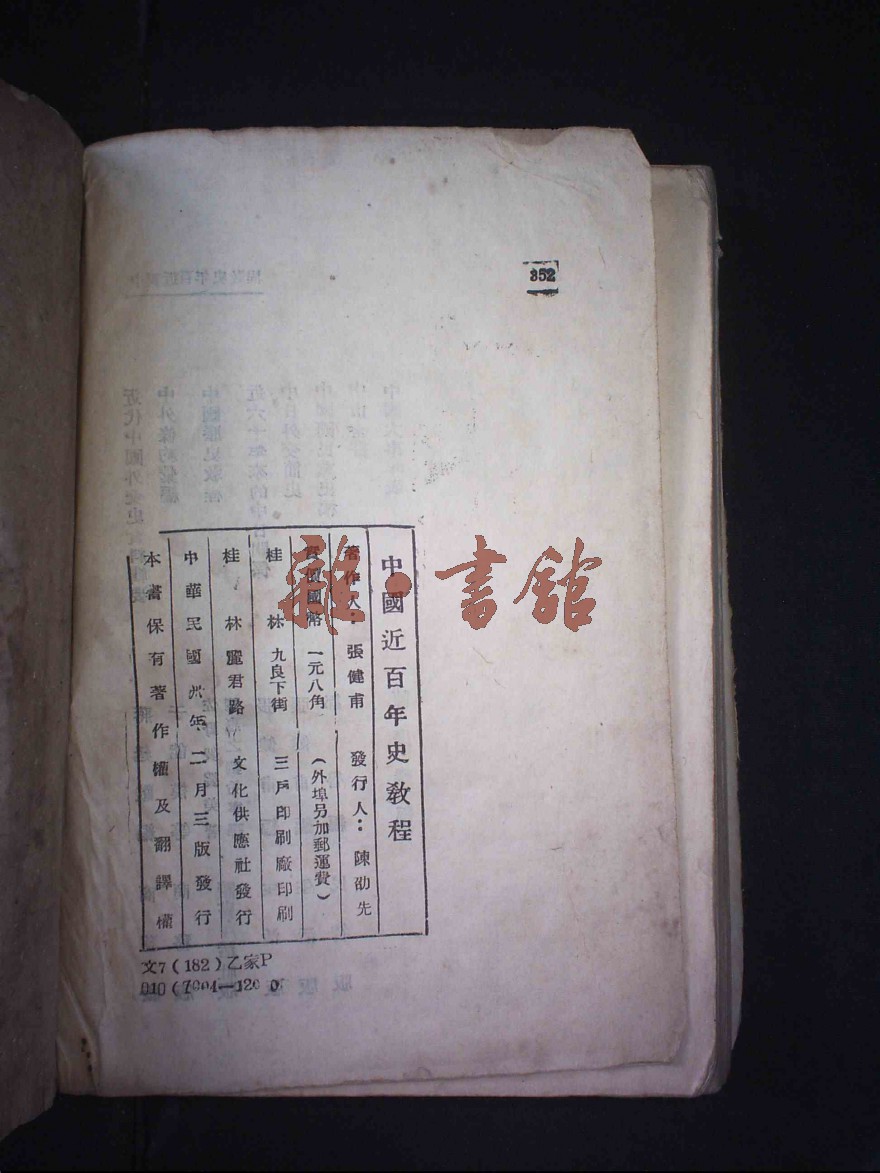 352
中國近百年史教程
著作人：張健甫 發行人：陳劭先
實價國幣 一元八角 （外埠另加郵運費）
桂林 九良下街 三戶印刷廠印刷
桂林麗君路 文化供應社發行
中華民國卅年二月三版發行
本書保有著作權及翻譯權
文7（182）乙家P
雜·書館